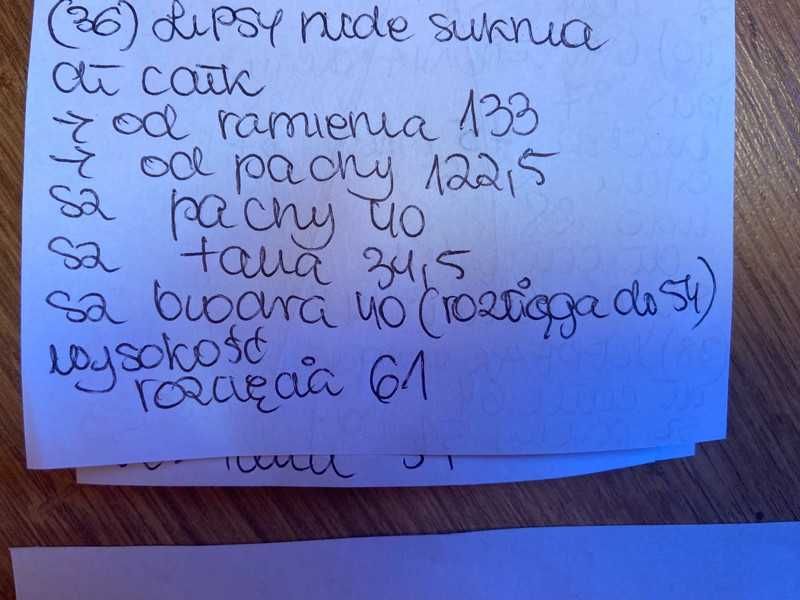 (36) Lipsy nude suknia
dł całk
→ od ramienia 133
→ od pachy 122,5
sz pachy 40
sz talia 34,5
sz biodra 40 (rozciąga do 54)
wysokość
rozcięcia 61